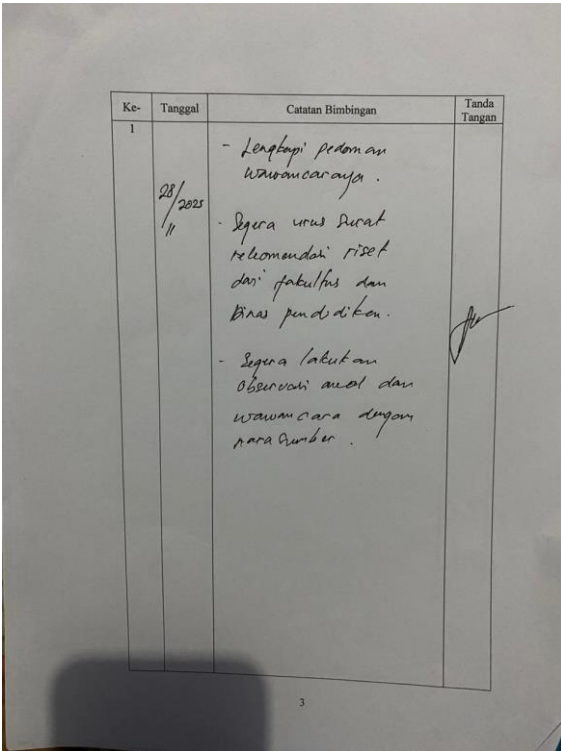 Ke-
Tanggal
Catatan Bimbingan
Tanda
Tangan
1
28/11/2025
- Lengkapi pedoman
wawancaranya.
- Segera urus surat
rekomendasi riset
dari fakultas dan
Dinas pendidikan.
- Segera lakukan
observasi awal dan
wawancara dengan
nara sumber.
3